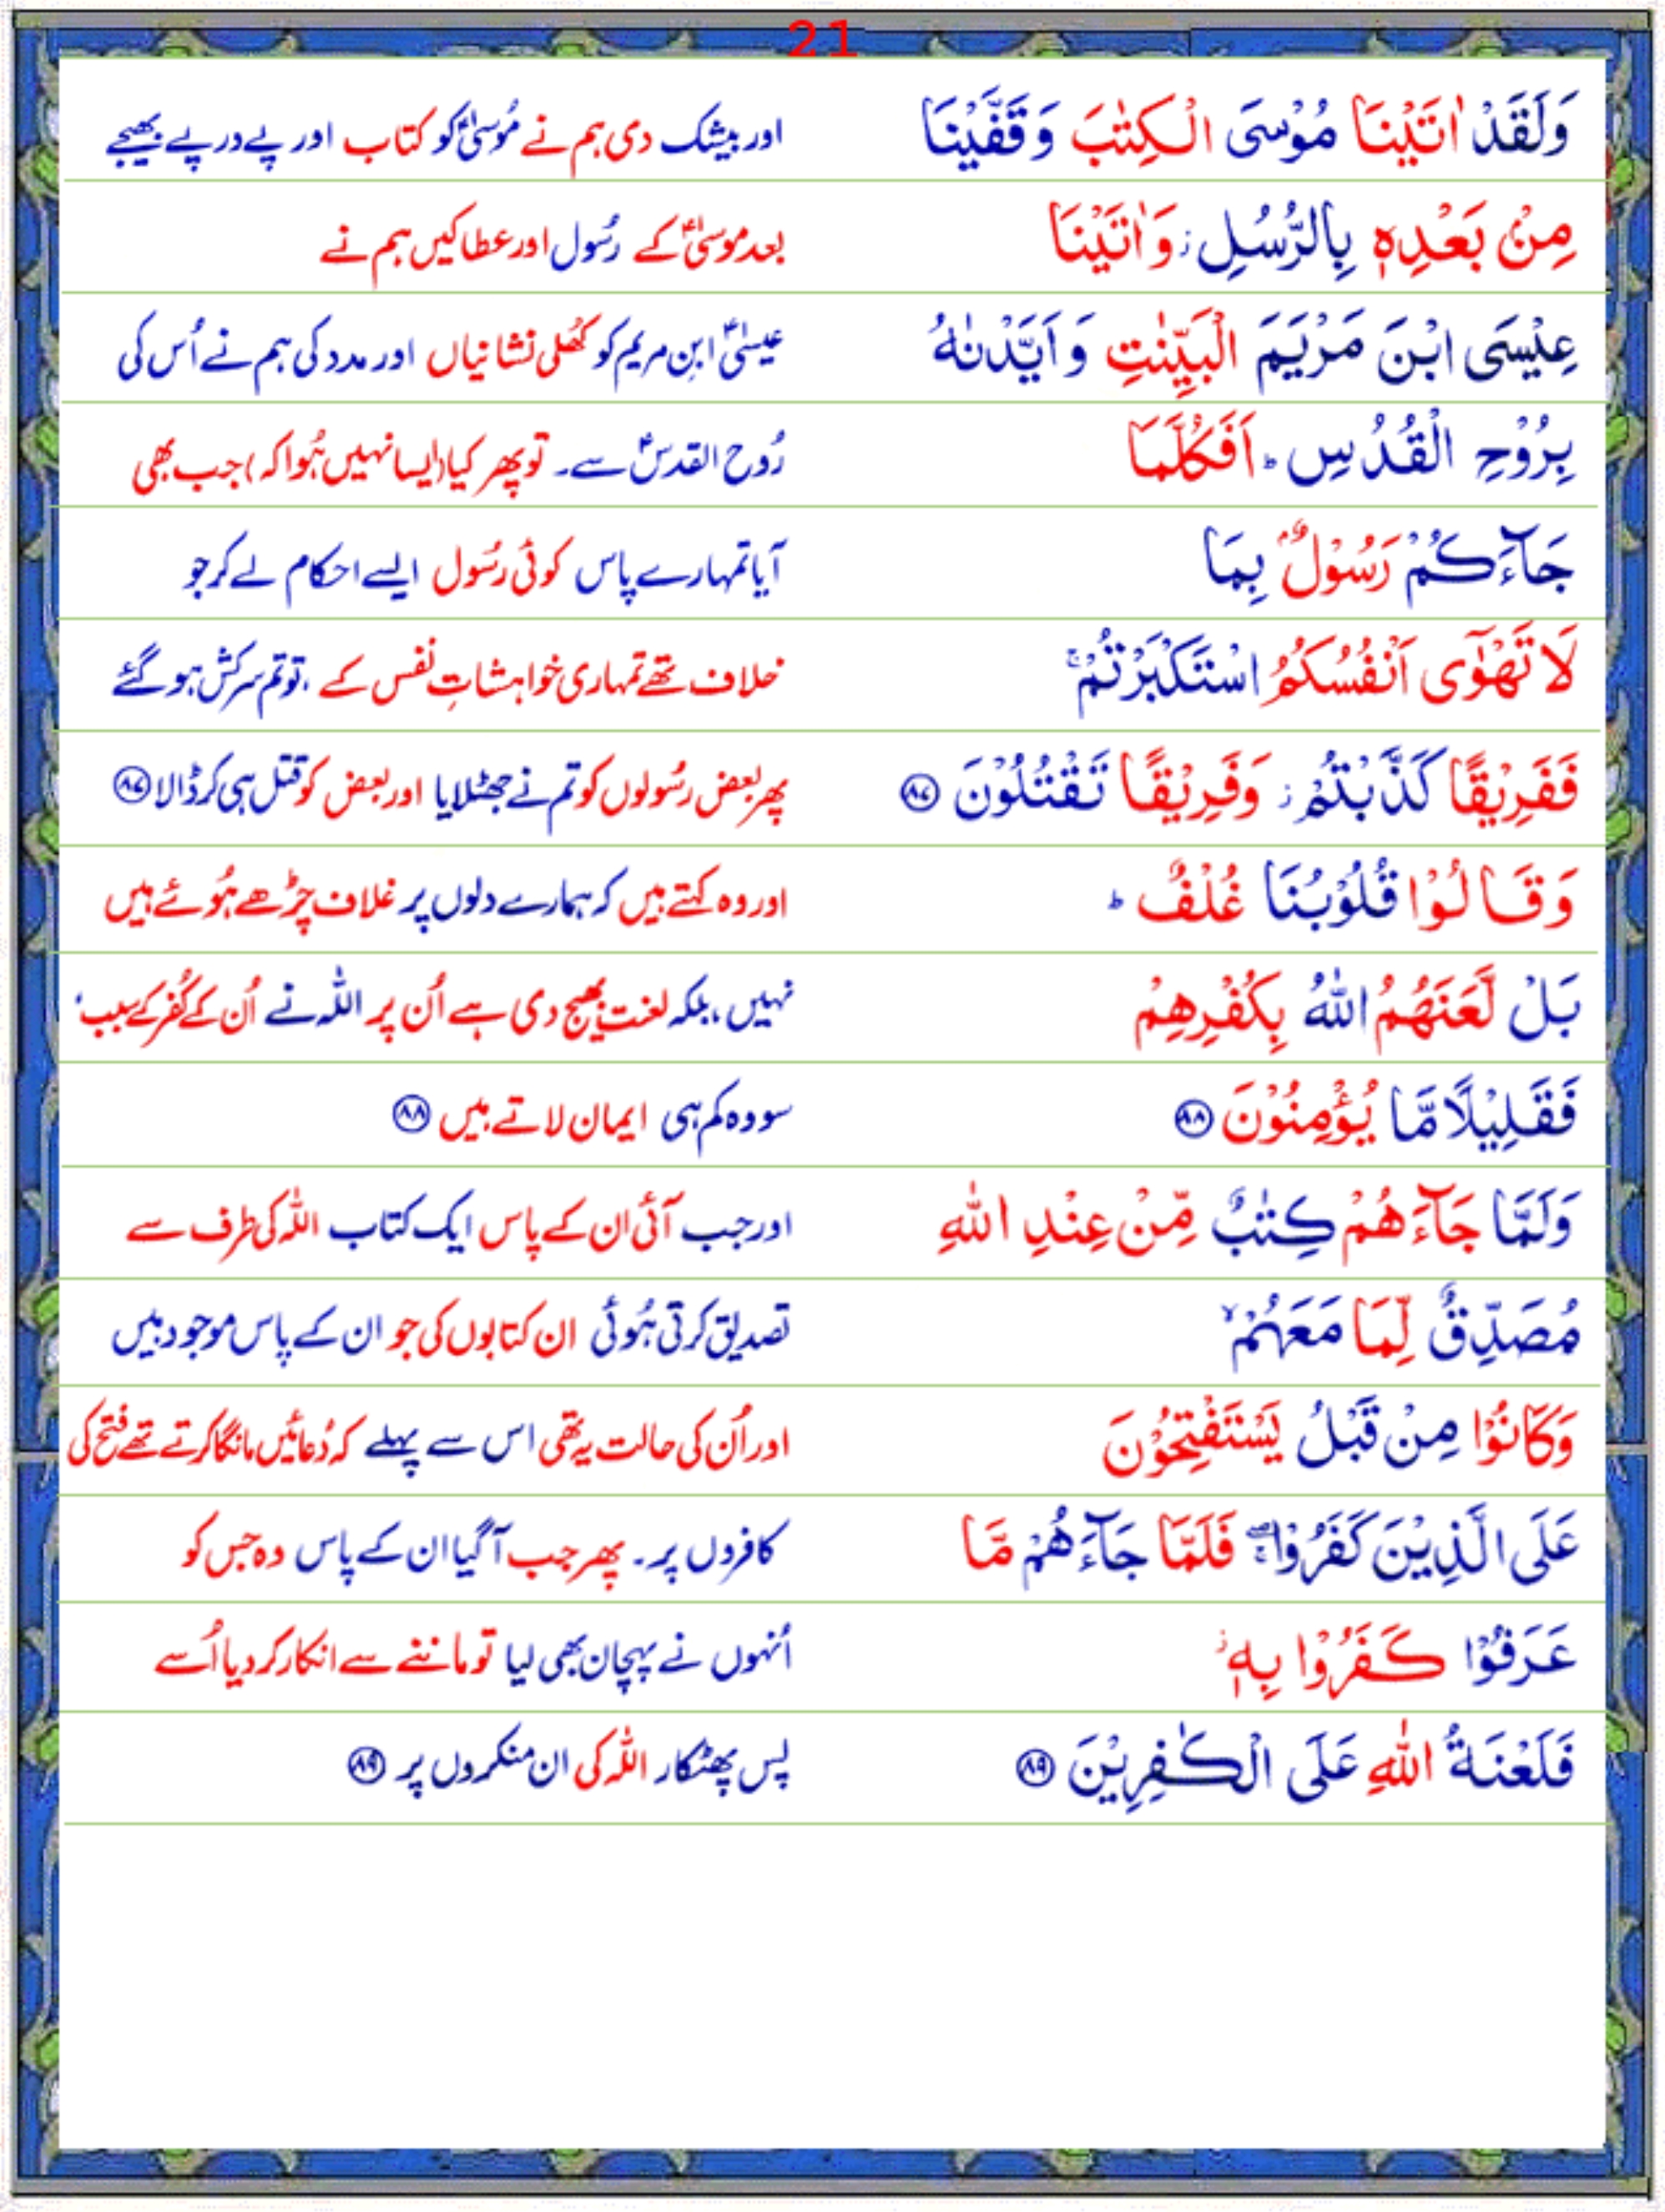 21
وَلَقَدْ اٰتَيْنَا مُوْسَى الْكِتٰبَ وَقَفَّيْنَا اور بیشک دی ہم نے مُوسیٰؑ کو کتاب اور پے درپے بھیجے
مِنْۢ بَعْدِهٖ بِالرُّسُلِ ز وَاٰتَيْنَا بعد موسیٰؑ کے رسُول اور عطا کیں ہم نے
عِيْسَى ابْنَ مَرْيَمَ الْبَيِّنٰتِ وَاَيَّدْنٰهُ عیسیٰؑ ابنِ مریم کو کھُلی نشانیاں اور مدد کی ہم نے اُس کی
بِرُوْحِ الْقُدُسِ ط اَفَكُلَّمَا رُوح القدسؑ سے۔ تو پھر کیا (ایسا نہیں ہُوا کہ) جب بھی
جَآءَكُمْ رَسُوْلٌۢ بِمَا آیا تمہارے پاس کوئی رسُول ایسے احکام لے کر جو
لَا تَهْوٰٓى اَنْفُسُكُمُ اسْتَكْبَرْتُمْ ۚ خلاف تھے تمہاری خواہشاتِ نفس کے، تو تم سرکش ہو گئے
فَفَرِيْقًا كَذَّبْتُمْ ز وَفَرِيْقًا تَقْتُلُوْنَ ﴿۸۷﴾ پھر بعض رسُولوں کو تم نے جھٹلایا اور بعض کو قتل ہی کر ڈالا ﴿۸۷﴾
وَقَالُوْا قُلُوْبُنَا غُلْفٌ ط اور وہ کہتے ہیں کہ ہمارے دلوں پر غلاف چڑھے ہُوئے ہیں
بَلْ لَّعَنَهُمُ اللّٰهُ بِكُفْرِهِمْ نہیں، بلکہ لعنت بھیج دی ہے اُن پر اللّٰہ نے اُن کے کُفر کے سبب،
فَقَلِيْلًا مَّا يُؤْمِنُوْنَ ﴿۸۸﴾ سو وہ کم ہی ایمان لاتے ہیں ﴿۸۸﴾
وَلَمَّا جَآءَهُمْ كِتٰبٌ مِّنْ عِنْدِ اللّٰهِ اور جب آئی ان کے پاس ایک کتاب اللّٰہ کی طرف سے
مُصَدِّقٌ لِّمَا مَعَهُمْ ۙ تصدیق کرتی ہُوئی ان کتابوں کی جو ان کے پاس موجود ہیں
وَكَانُوْا مِنْ قَبْلُ يَسْتَفْتِحُوْنَ اور اُن کی حالت یہ تھی اس سے پہلے کہ دُعائیں مانگا کرتے تھے فتح کی
عَلَى الَّذِيْنَ كَفَرُوْا ۚۖ فَلَمَّا جَآءَهُمْ مَّا کافروں پر۔ پھر جب آگیا ان کے پاس وہ جس کو
عَرَفُوْا كَفَرُوْا بِهٖ ز اُنہوں نے پہچان بھی لیا تو ماننے سے انکار کر دیا اُسے
فَلَعْنَةُ اللّٰهِ عَلَى الْكٰفِرِيْنَ ﴿۸۹﴾ پس پھٹکار اللّٰہ کی ان منکروں پر ﴿۸۹﴾